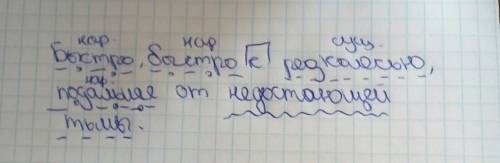 нар. нар сущ.
Быстро, быстро к редколесью,
нар.
подальше от недостающей
тьмы.